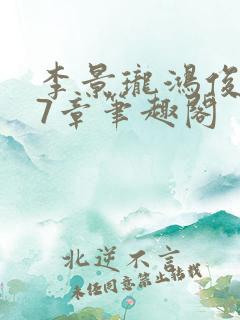 李景瓏鴻俊
7章筆趣閣
北逆不言
未任同意禁止转载